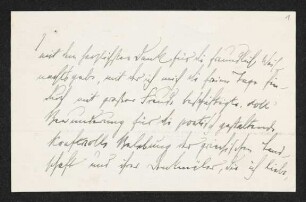 1
mit dem herzlichsten Dank für die freundliche Weih-
nachtsgabe, mit der ich mich die freien Tage hin-
durch mit großer Freude beschäftigte, voll
Bewunderung für die poetisch gestaltende,
kraftvolle Belebung der griechischen Land-
schaft und ihrer Denkmäler, die ich liebe,